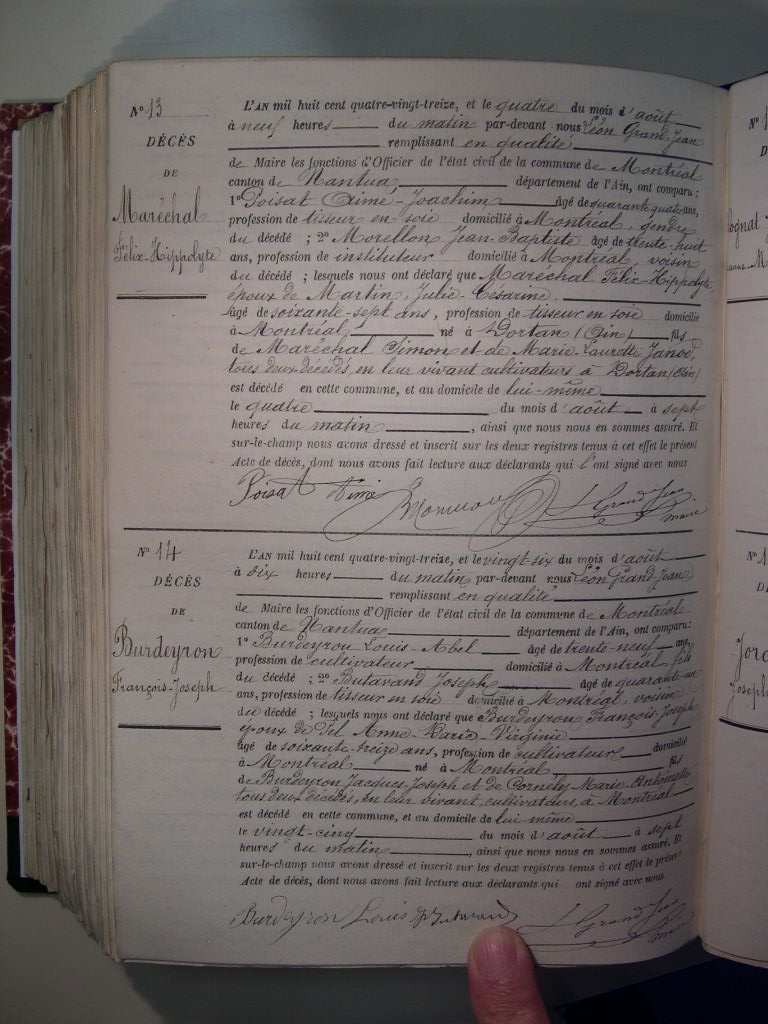 N° 13
DÉCÈS
DE
Maréchal
Félix-Hippolyte
L'AN mil huit cent quatre-vingt-treize, et le quatre du mois d'août
à neuf heures du matin par-devant nous Léon Grand Jean
remplissant en qualité
de Maire les fonctions d'Officier de l'état civil de la commune de Montréal
canton de Nantua département de l'Ain, ont comparu:
1° Poisat Aimé-Joachim âgé de quarante quatre ans,
profession de tisseur en soie domicilié à Montréal, gendre
du décédé ; 2° Morellon Jean-Baptiste âgé de trente-huit
ans, profession de instituteur domicilié à Montréal, voisin
du décédé ; lesquels nous ont déclaré que Maréchal Félix-Hippolyte
époux de Martin Julie-Césarine
âgé de soixante-sept ans, profession de tisseur en soie domicilié
à Montréal, né à Dortan (Ain) fils
de Maréchal Simon et de Marie-Laurette
tous deux décédés, en leur vivant cultivateurs à Dortan (Ain)
est décédé en cette commune, et au domicile de lui-même
le quatre du mois d'août à sept
heures du matin, ainsi que nous nous en sommes assuré. Et
sur-le-champ nous avons dressé et inscrit sur les deux registres tenus à cet effet le présent
Acte de décès, dont nous avons fait lecture aux déclarants qui l'ont signé avec nous
Poisat Aimé Morellon L Grand Jean
maire
N° 14
DÉCÈS
DE
Burdeyron
François-Joseph
L'AN mil huit cent quatre-vingt-treize, et le vingt six du mois d'août
à dix heures du matin par-devant nous Léon Grand Jean
remplissant en qualité
de Maire les fonctions d'Officier de l'état civil de la commune de Montréal
canton de Nantua département de l'Ain, ont comparu:
1° Burdeyron Louis-Abel âgé de trente-neuf ans,
profession de cultivateur domicilié à Montréal fils
du décédé ; 2° Butavand Joseph âgé de quarante-un
ans, profession de tisseur en soie domicilié à Montréal, voisin
du décédé ; lesquels nous ont déclaré que Burdeyron François-Joseph
époux de Fel Anne-Marie-Virginie
âgé de soixante-treize ans, profession de cultivateur domicilié
à Montréal né à Montréal, fils
de Burdeyron Jacques Joseph et de Cornely Marie Antoinette
tous deux décédés, en leur vivant cultivateurs, à Montréal
est décédé en cette commune, et au domicile de lui même
le vingt-cinq du mois d'août à sept
heures du matin, ainsi que nous nous en sommes assuré. Et
sur-le-champ nous avons dressé et inscrit sur les deux registres tenus à cet effet le présent
Acte de décès, dont nous avons fait lecture aux déclarants qui ont signé avec nous
Burdeyron Louis Butavand L Grand Jean
maire